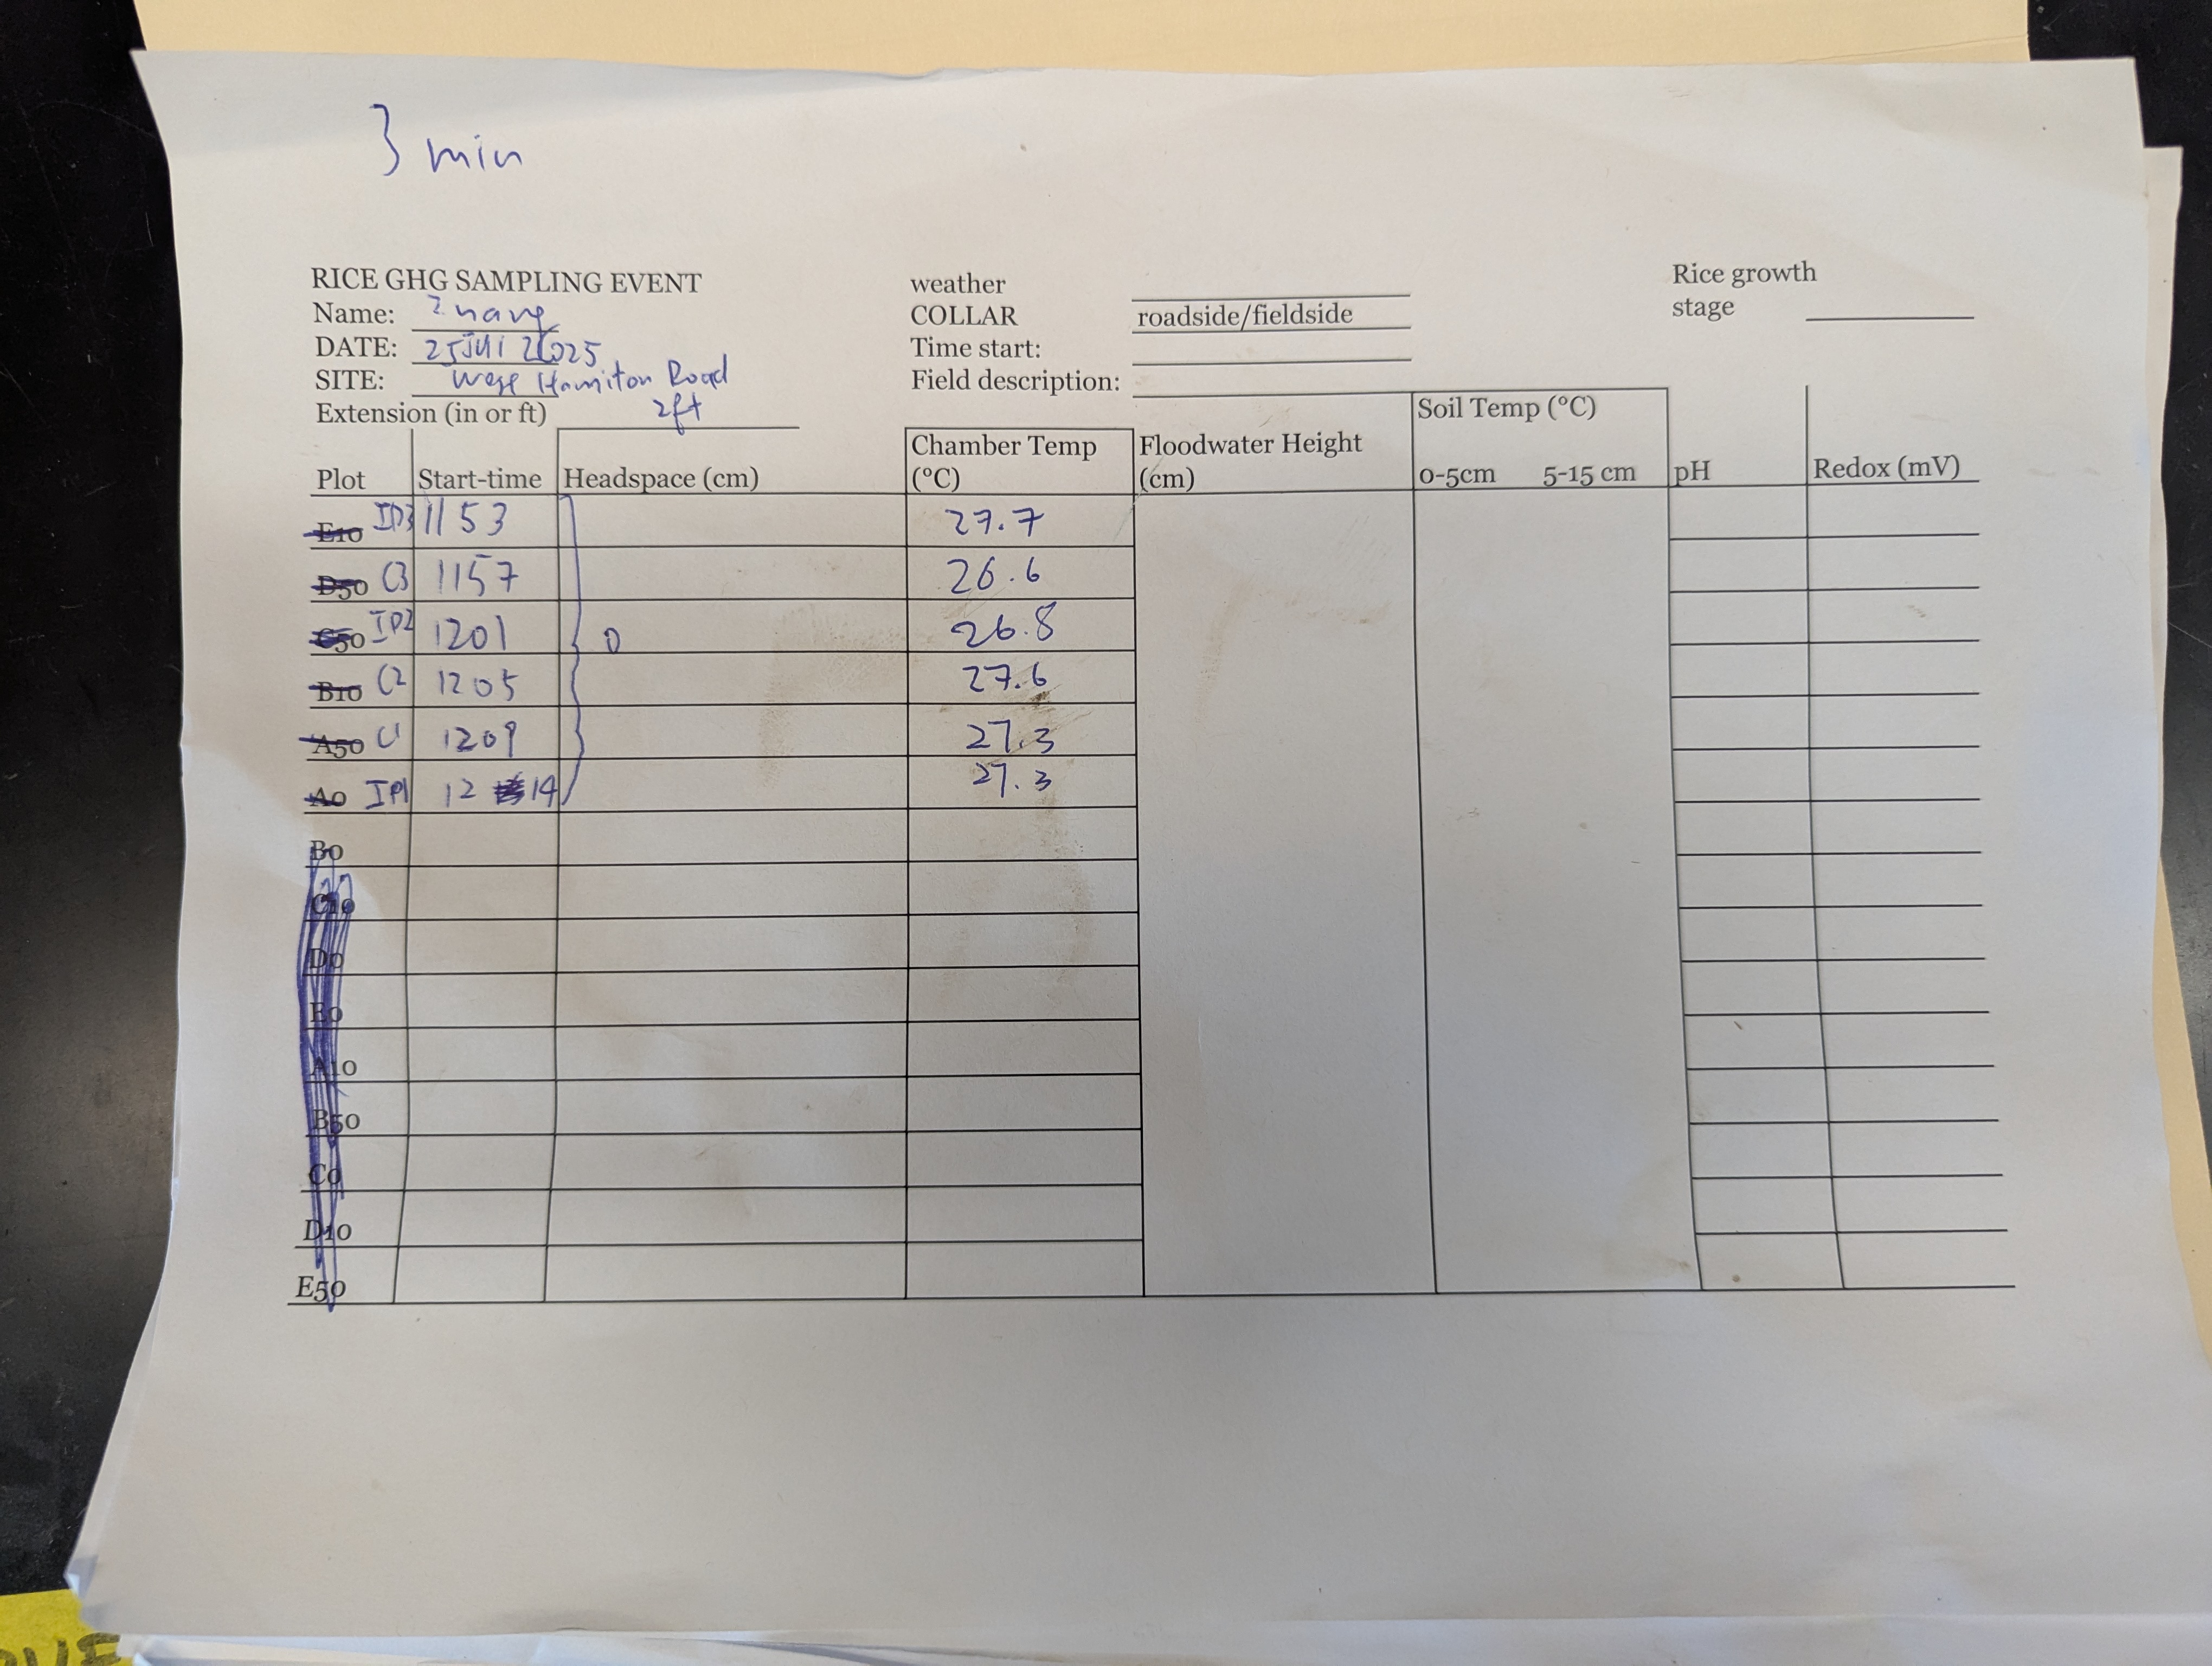 3 min
RICE GHG SAMPLING EVENT
Name: Znang
DATE: 25 Jul 2025
SITE: West Hamiton Road
Extension (in or ft) 2ft
weather
COLLAR roadside/fieldside
Time start:
Field description:
Rice growth
stage
Soil Temp (°C)
Plot Start-time Headspace (cm) Chamber Temp (°C) Floodwater Height (cm) 0-5cm 5-15 cm pH Redox (mV)
E10 IP3 1153 27.7
D50 C3 1157 26.6
C50 IP2 1201 0 26.8
B10 C2 1205 27.6
A50 C1 1209 27.3
A0 IP1 12 14 27.3
B0
C10
D0
E0
A10
B50
C0
D10
E50